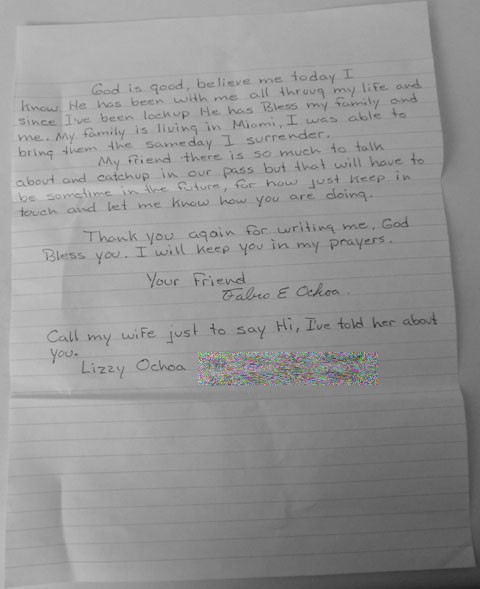 God is good, believe me today I
know He has been with me all throug my life and
since I've been lockup He has Bless my family and
me. My family is living in Miami, I was able to
bring them the sameday I surrender.
My friend there is so much to talk
about and catchup in our pass but that will have to
be sometime in the future, for now just keep in
touch and let me know how you are doing.
Thank you again for writing me. God
Bless you. I will keep you in my prayers.
Your Friend
Fabio E Ochoa.
Call my wife just to say Hi, I've told her about
you.
Lizzy Ochoa